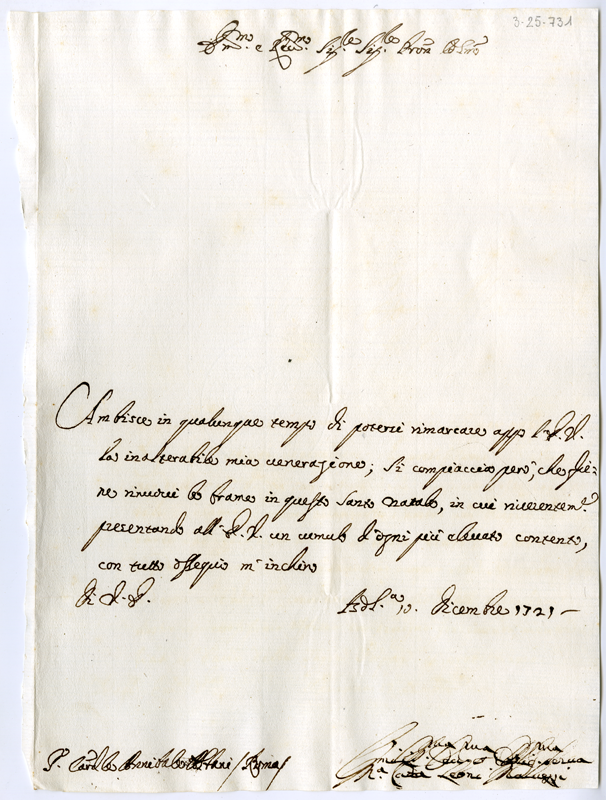 3-25-731
Em̃o e Rm̃o Sig.re Sig.re Pron Col̃mo
Ambisce in qualunque tempo di potere rimarcare app. l'E. V.
la inalterabile mia venerazione; Si compiaccia però, che glie=
ne rinuovi le brame in questo Santo Natale, in cui riverentem.e
presentando all'E. V. un cumulo d'ogni più elevato contento,
con tutto ossequio m'inchino
Di V. E.
Bol.a 10. Dicembre 1721
S.r Card.le Annibale Albani / Roma /
Um̃a Dev.ma Obl.ma
Leoni